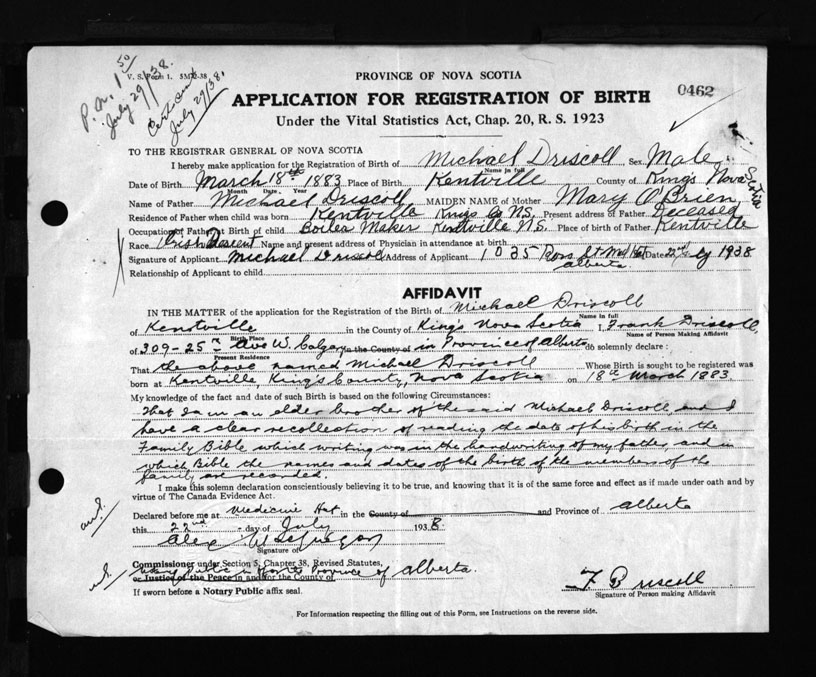 V. S. Form 1. 5M-2-38
P. a. 1 50
July 29/38.
July 29/38.
PROVINCE OF NOVA SCOTIA
0462
APPLICATION FOR REGISTRATION OF BIRTH
Under the Vital Statistics Act, Chap. 20, R. S. 1923
TO THE REGISTRAR GENERAL OF NOVA SCOTIA
I hereby make application for the Registration of Birth of Michael Driscoll Sex Male
Name in full
Date of Birth March 18th 1883 Place of Birth Kentville County of Kings Nova Scotia
Month Date. Year
Name of Father Michael Driscoll MAIDEN NAME of Mother Mary O'Brien
Residence of Father when child was born Kentville Kings Co N.S. Present address of Father Deceased
Occupation of Father at Birth of child Boiler Maker Kentville N.S. Place of birth of Father Kentville
Race Irish Descent Name and present address of Physician in attendance at birth
Signature of Applicant Michael Driscoll Address of Applicant 1035 Ross St Med Hat Date 22nd July 1938
Alberta
Relationship of Applicant to child
AFFIDAVIT
IN THE MATTER of the application for the Registration of Birth of Michael Driscoll
Name in full
of Kentville in the County of Kings Nova Scotia I, Frank Driscoll,
Birth Place Name of Person Making Affidavit
of 309-25th Ave W. Calgary in the County of in Province of Alberta do solemnly declare :
Present Residence
That the above named Michael Driscoll Whose Birth is sought to be registered was
born at Kentville, Kings County, Nova Scotia on 18th March 1883.
My knowledge of the fact and date of such Birth is based on the following Circumstances:
That I am an elder brother of the said Michael Driscoll, and I
have a clear recollection of reading the date of his birth in the
Family Bible which writing was in the handwriting of my father, and in
which Bible the names and dates of the birth of the members of the
family are recorded.
I make this solemn declaration conscientiously believing it to be true, and knowing that it is of the same force and effect as if made under oath and by
virtue of The Canada Evidence Act.
Declared before me at Medicine Hat in the County of and Province of Alberta
this 22nd day of July 1938
Alex McGregor
Signature of
Commissioner under Section 5, Chapter 38, Revised Statutes,
or Justice of the Peace in and for the County of
Notary Public in & for the Province of Alberta.
If sworn before a Notary Public affix seal.
F. Driscoll
Signature of Person making Affidavit
For Information respecting the filling out of this Form, see Instructions on the reverse side.